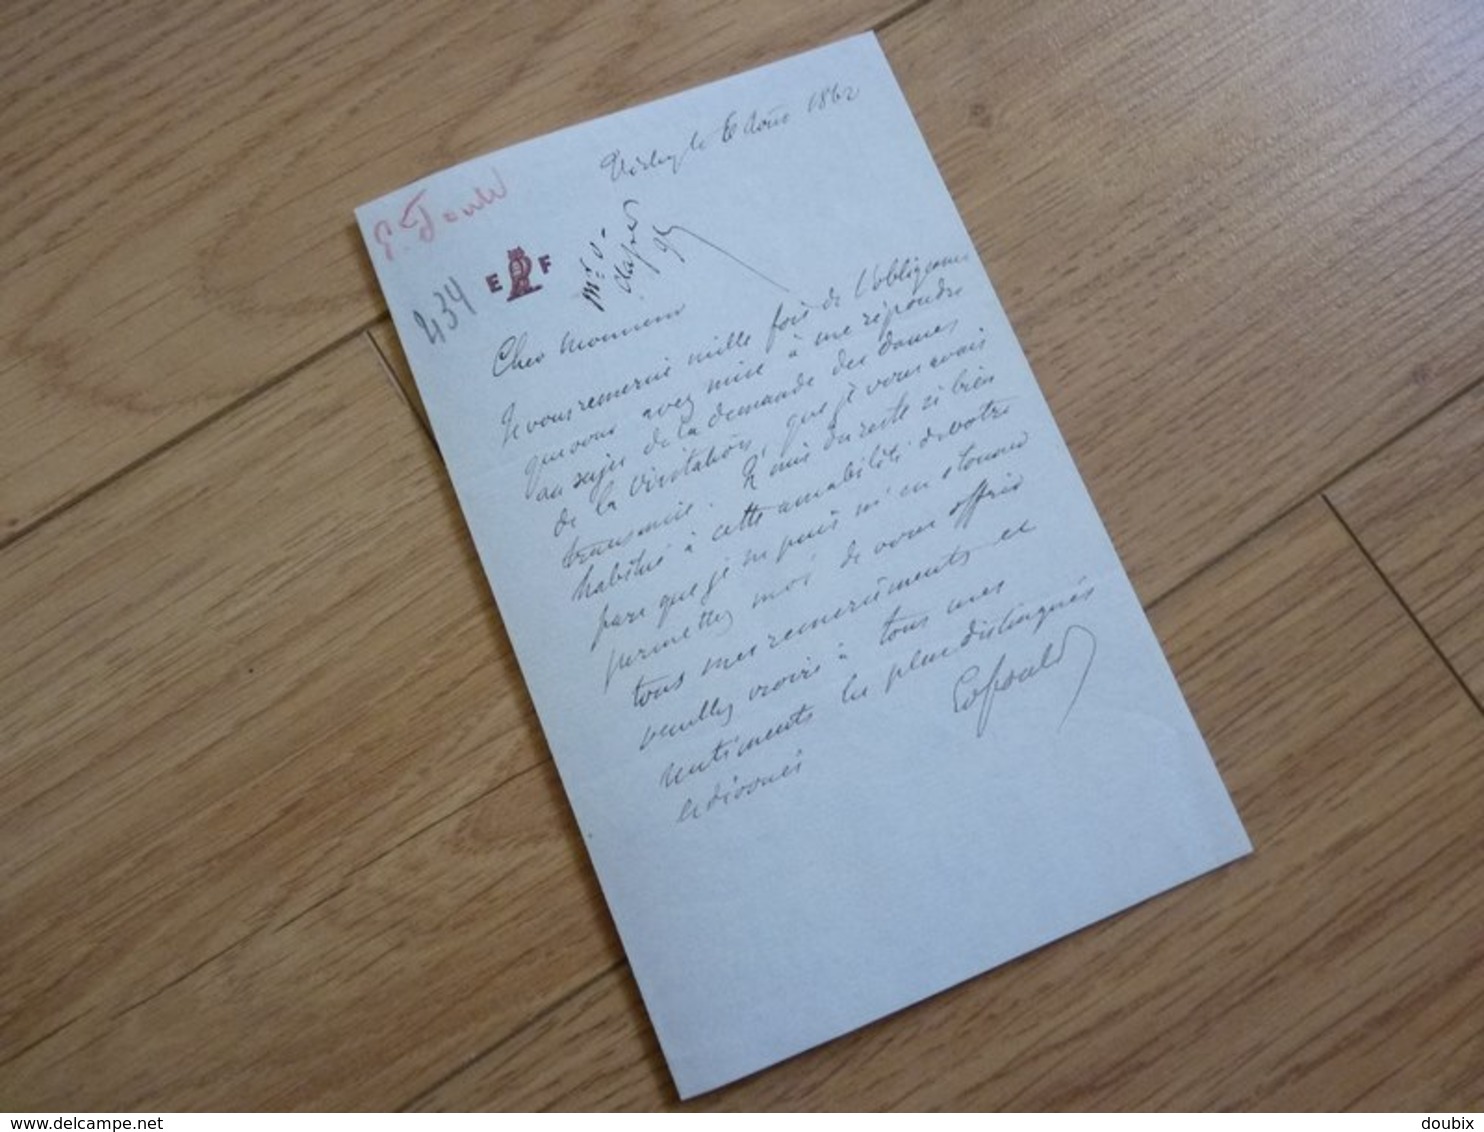 Vichy le 6 Août 1862
E. Fould
E F
434
Cher Monsieur
Je vous remercie mille fois de l'obligeance
que vous avez mise à me répondre
au sujet de la demande des dames
de la visitation, que je vous avais
transmise. Je suis du reste si bien
habitué à cette amabilité de votre
part que je ne puis m'en étonner
permettez moi de vous offrir
tous mes remerciements et
veuillez croire à tous mes
sentiments les plus distingués
et dévoués
Ed Fould
delcampe.net
doubix